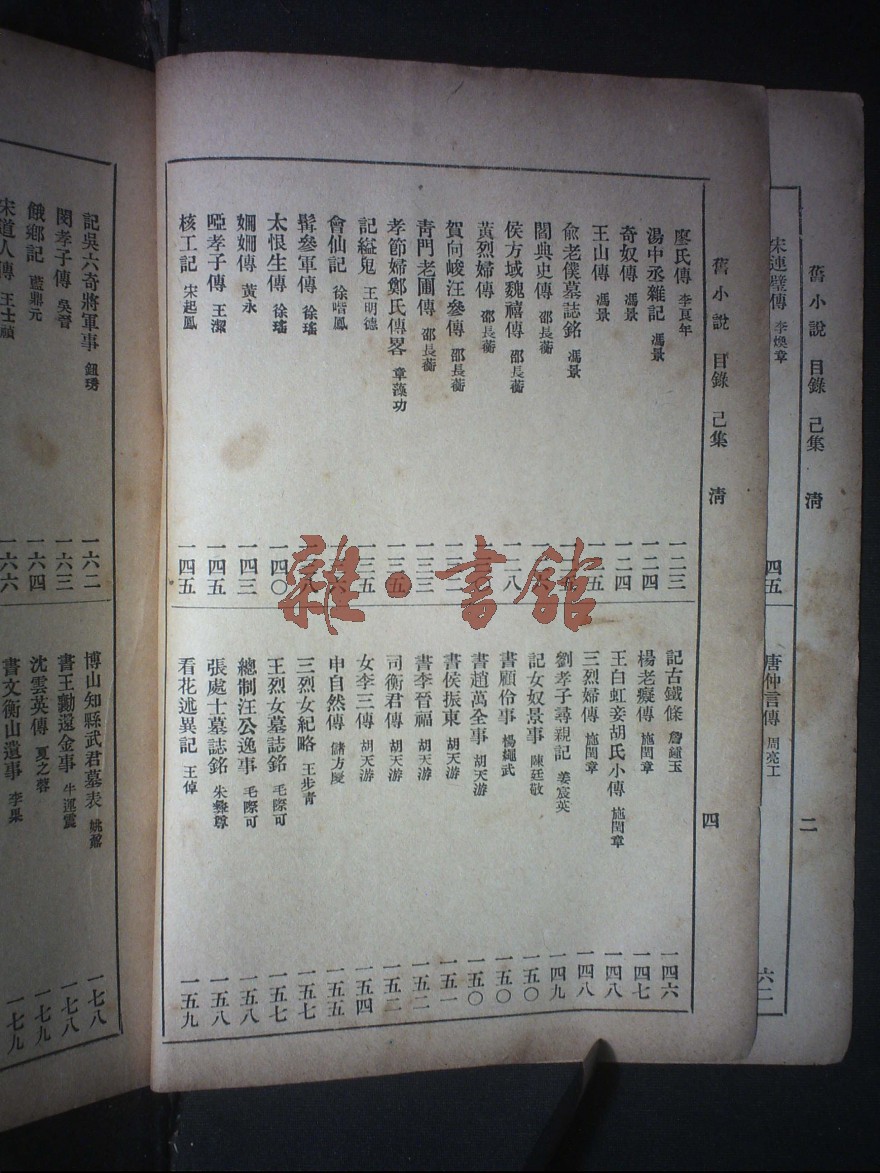 舊小說 目錄 己集 清 二
宋連璧傳 李煥章 四五
唐仲言傳 周亮工 六二
舊小說 目錄 己集 清 四
廖氏傳 李良年 一二三
湯中丞雜記 馮景 一二四
奇奴傳 馮景 一二四
王山傳 馮景 一二五
俞老僕墓誌銘 馮景
閻典史傳 邵長蘅
侯方域魏禧傳 邵長蘅 一二八
黃烈婦傳 邵長蘅
賀向峻汪參傳 邵長蘅
青門老圃傳 邵長蘅 一三三
孝節婦鄭氏傳畧 章藻功 一三五
記縊鬼 王明德 一三五
會仙記 徐喈鳳
髯參軍傳 徐瑤
太恨生傳 徐瑤 一四〇
姍姍傳 黃永 一四三
啞孝子傳 王潔 一四五
核工記 宋起鳳 一四五
記古鐵條 詹鍾玉 一四六
楊老癡傳 施閏章 一四七
王白虹妾胡氏小傳 施閏章 一四八
三烈婦傳 施閏章 一四八
劉孝子尋親記 姜宸英 一四九
記女奴景事 陳廷敬 一五〇
書顧伶事 楊繩武 一五〇
書趙萬全事 胡天游 一五〇
書侯振東 胡天游 一五一
書李晉福 胡天游 一五二
司衡君傳 胡天游 一五二
女李三傳 胡天游 一五四
申自然傳 儲方慶 一五五
三烈女紀略 王步青 一五七
王烈女墓誌銘 毛際可 一五七
總制汪公逸事 毛際可 一五八
張處士墓誌銘 朱彝尊 一五八
看花述異記 王倬 一五九
記吳六奇將軍事 鈕琇 一六二
閔孝子傳 吳晉 一六三
餓鄉記 藍鼎元 一六四
宋道人傳 王士禎 一六六
博山知縣武君墓表 姚鼐 一七八
書王勷遠金事 牛運震 一七八
沈雲英傳 夏之蓉 一七九
書文衡山遺事 李果 一七九
雜·書館